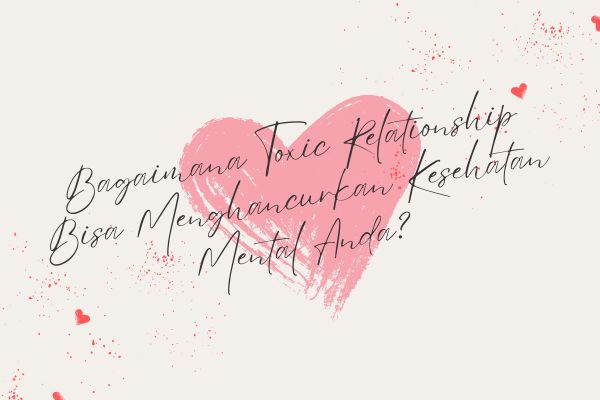 Bagaimana Toxic Relationship
Bisa Menghancurkan Kesehatan
Mental Anda?